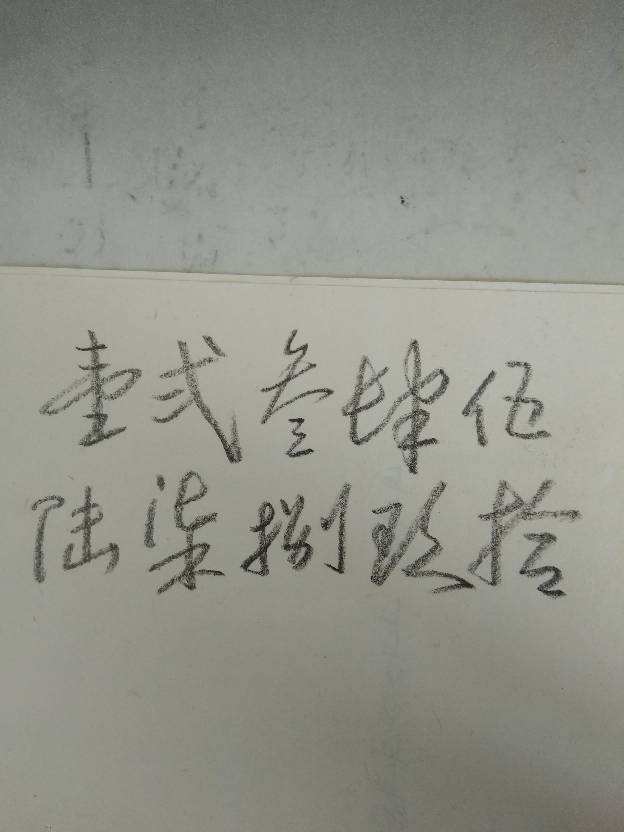 壹弍叁肆伍
陆柒捌玖拾